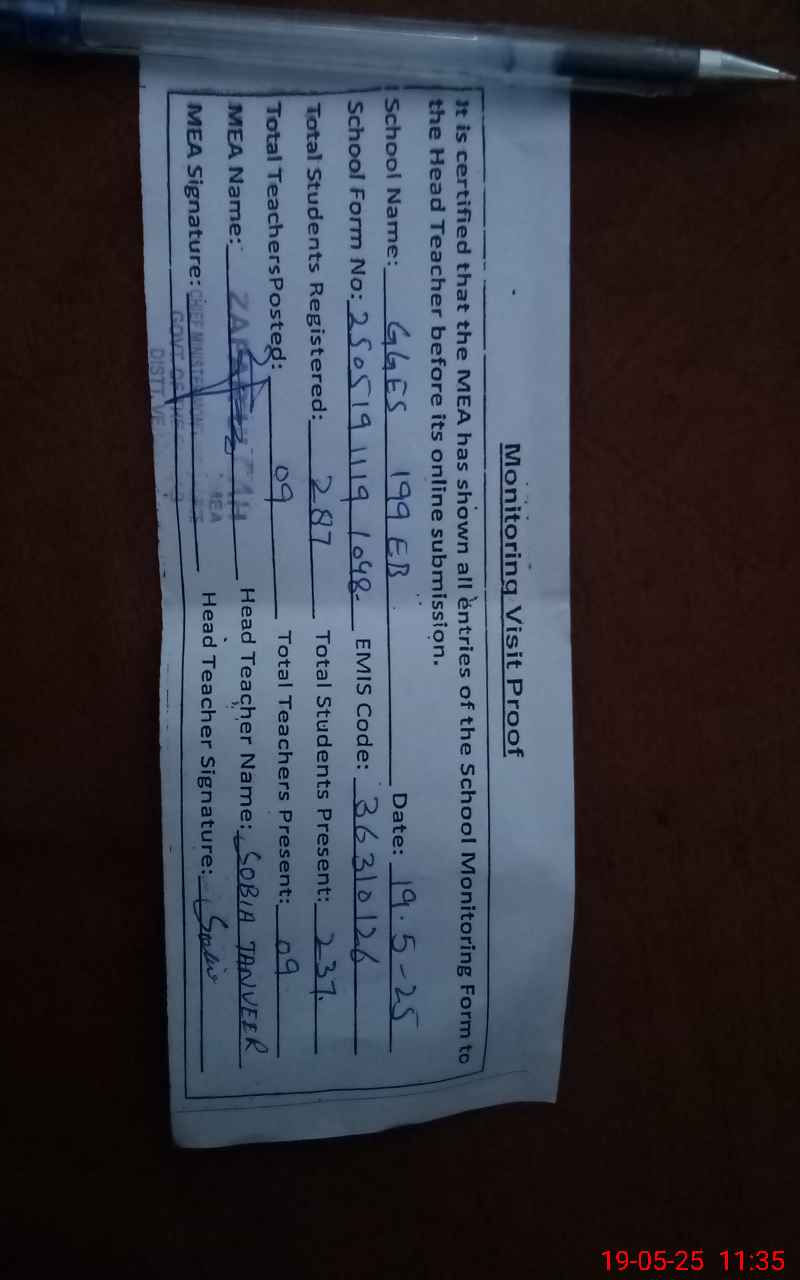 Monitoring Visit Proof
It is certified that the MEA has shown all entries of the School Monitoring Form to
the Head Teacher before its online submission.
School Name: GGES 199 EB Date: 19.5-25
School Form No: 2505191119 1048- EMIS Code: 36310126
Total Students Registered: 287 Total Students Present: 237.
Total TeachersPosted: 09 Total Teachers Present: 09
MEA Name: Head Teacher Name: SOBIA TANVEER
MEA Signature: Head Teacher Signature: Sobia
CHIEF MINISTER
GOVT OF THE
DISTT. VE
MEA
19-05-25 11:35